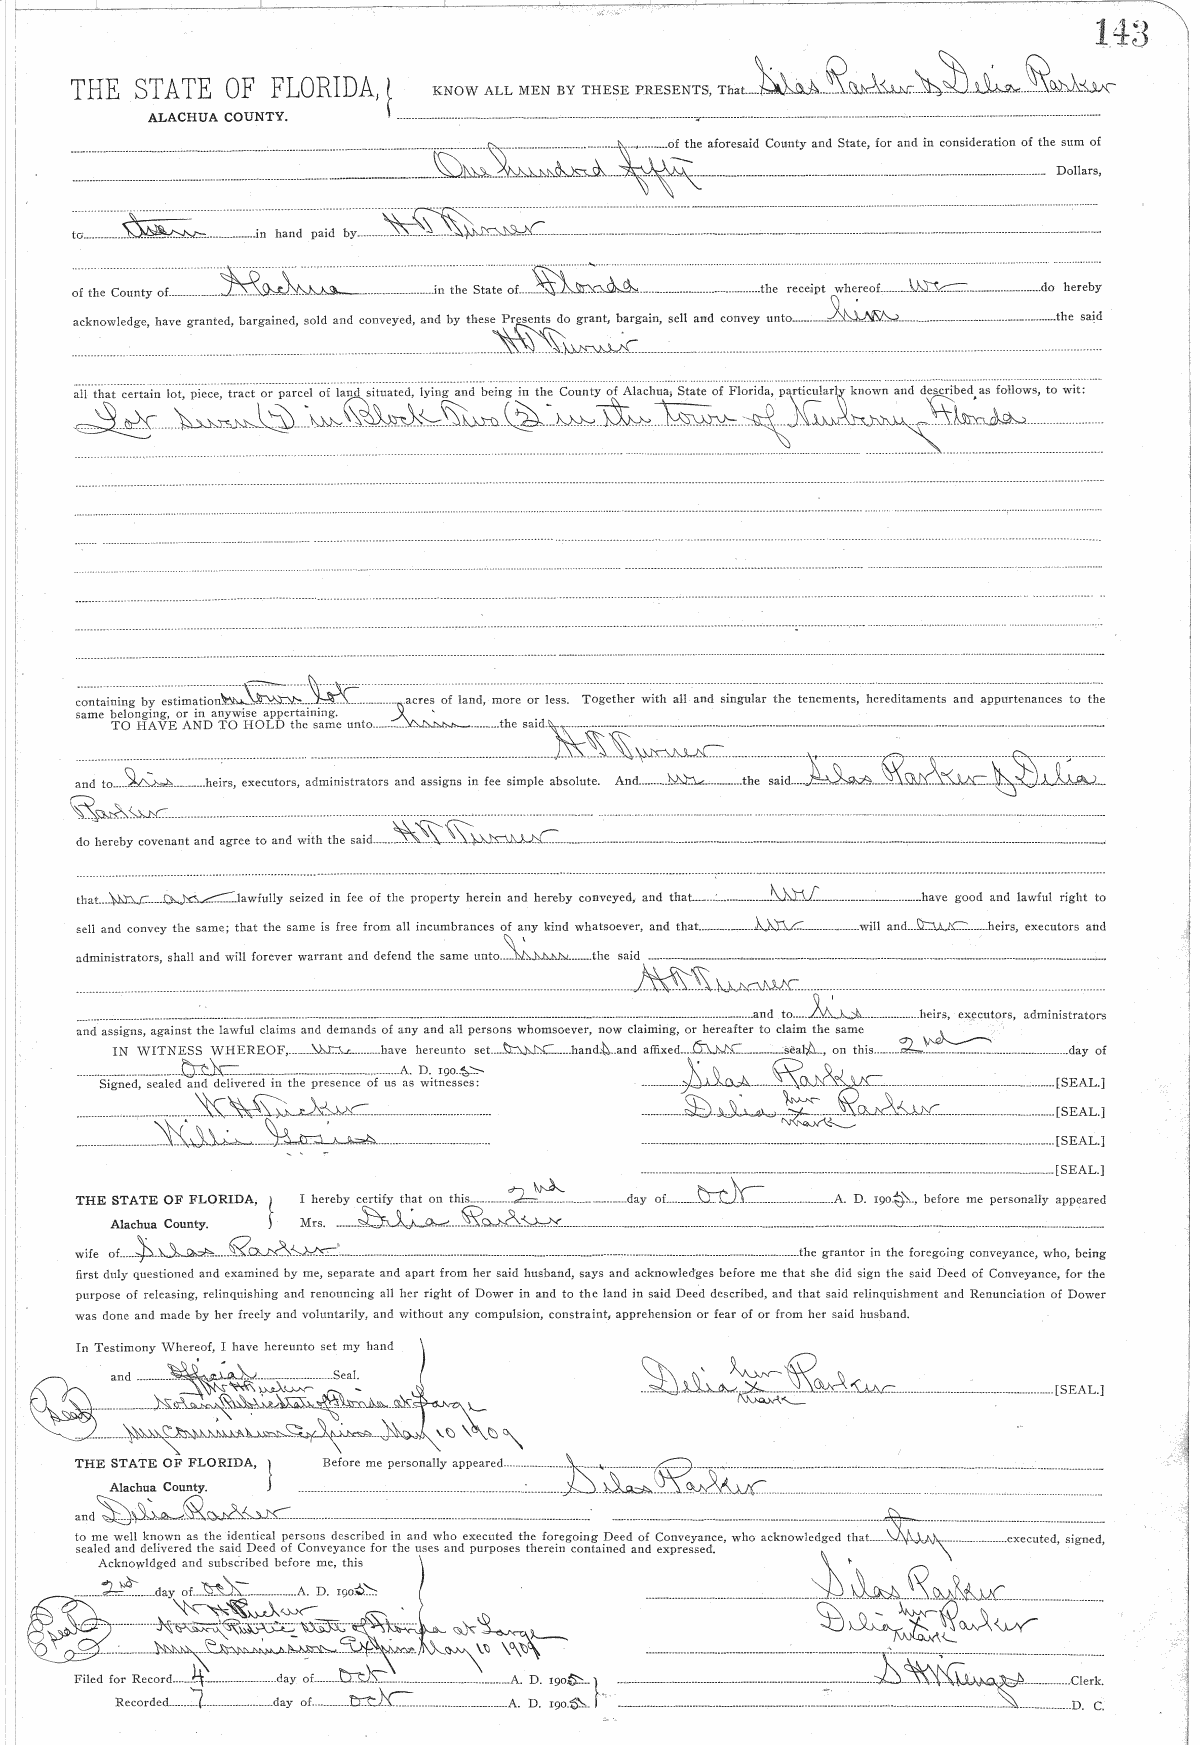 143
THE STATE OF FLORIDA, KNOW ALL MEN BY THESE PRESENTS, That Silas Parker & Delia Parker
ALACHUA COUNTY.
of the aforesaid County and State, for and in consideration of the sum of
One hundred fifty Dollars,
to them in hand paid by H T Turner
of the County of Alachua in the State of Florida the receipt whereof we do hereby
acknowledge, have granted, bargained, sold and conveyed, and by these Presents do grant, bargain, sell and convey unto him the said
H T Turner
all that certain lot, piece, tract or parcel of land situated, lying and being in the County of Alachua, State of Florida, particularly known and described as follows, to wit:
Lot Seven (7) in Block Two (2 in the town of Newberry, Florida
containing by estimation one town lot acres of land, more or less. Together with all and singular the tenements, hereditaments and appurtenances to the
same belonging, or in anywise appertaining.
TO HAVE AND TO HOLD the same unto him the said
H T Turner
and to his heirs, executors, administrators and assigns in fee simple absolute. And we the said Silas Parker & Delia
Parker
do hereby covenant and agree to and with the said H T Turner
that we are lawfully seized in fee of the property herein and hereby conveyed, and that we have good and lawful right to
sell and convey the same; that the same is free from all incumbrances of any kind whatsoever, and that we will and our heirs, executors and
administrators, shall and will forever warrant and defend the same unto him the said
H T Turner
and to his heirs, executors, administrators
and assigns, against the lawful claims and demands of any and all persons whomsoever, now claiming, or hereafter to claim the same
IN WITNESS WHEREOF, we have hereunto set our hands and affixed our seals, on this 2nd day of
Oct A. D. 1905
Signed, sealed and delivered in the presence of us as witnesses: Silas Parker [SEAL.]
W H Tucker Delia her x mark Parker [SEAL.]
Willie [SEAL.]
[SEAL.]
THE STATE OF FLORIDA, I hereby certify that on this 2nd day of Oct A. D. 1905, before me personally appeared
Alachua County. Mrs. Delia Parker
wife of Silas Parker the grantor in the foregoing conveyance, who, being
first duly questioned and examined by me, separate and apart from her said husband, says and acknowledges before me that she did sign the said Deed of Conveyance, for the
purpose of releasing, relinquishing and renouncing all her right of Dower in and to the land in said Deed described, and that said relinquishment and Renunciation of Dower
was done and made by her freely and voluntarily, and without any compulsion, constraint, apprehension or fear of or from her said husband.
In Testimony Whereof, I have hereunto set my hand
and official Seal. Delia her x mark Parker [SEAL.]
W H Tucker
Seal Notary Public State of Florida at Large
My Commission Expires May 10 1909
THE STATE OF FLORIDA, Before me personally appeared
Alachua County. Silas Parker
and Delia Parker
to me well known as the identical persons described in and who executed the foregoing Deed of Conveyance, who acknowledged that they executed, signed,
sealed and delivered the said Deed of Conveyance for the uses and purposes therein contained and expressed.
Acknowldged and subscribed before me, this
2nd day of Oct A. D. 1905 Silas Parker
W H Tucker Delia her x mark Parker
Seal Notary Public State of Florida at Large
My Commission Expires May 10 1909
Filed for Record 4 day of Oct A. D. 1905 S H Wienges Clerk.
Recorded 7 day of Oct A. D. 1905 D. C.